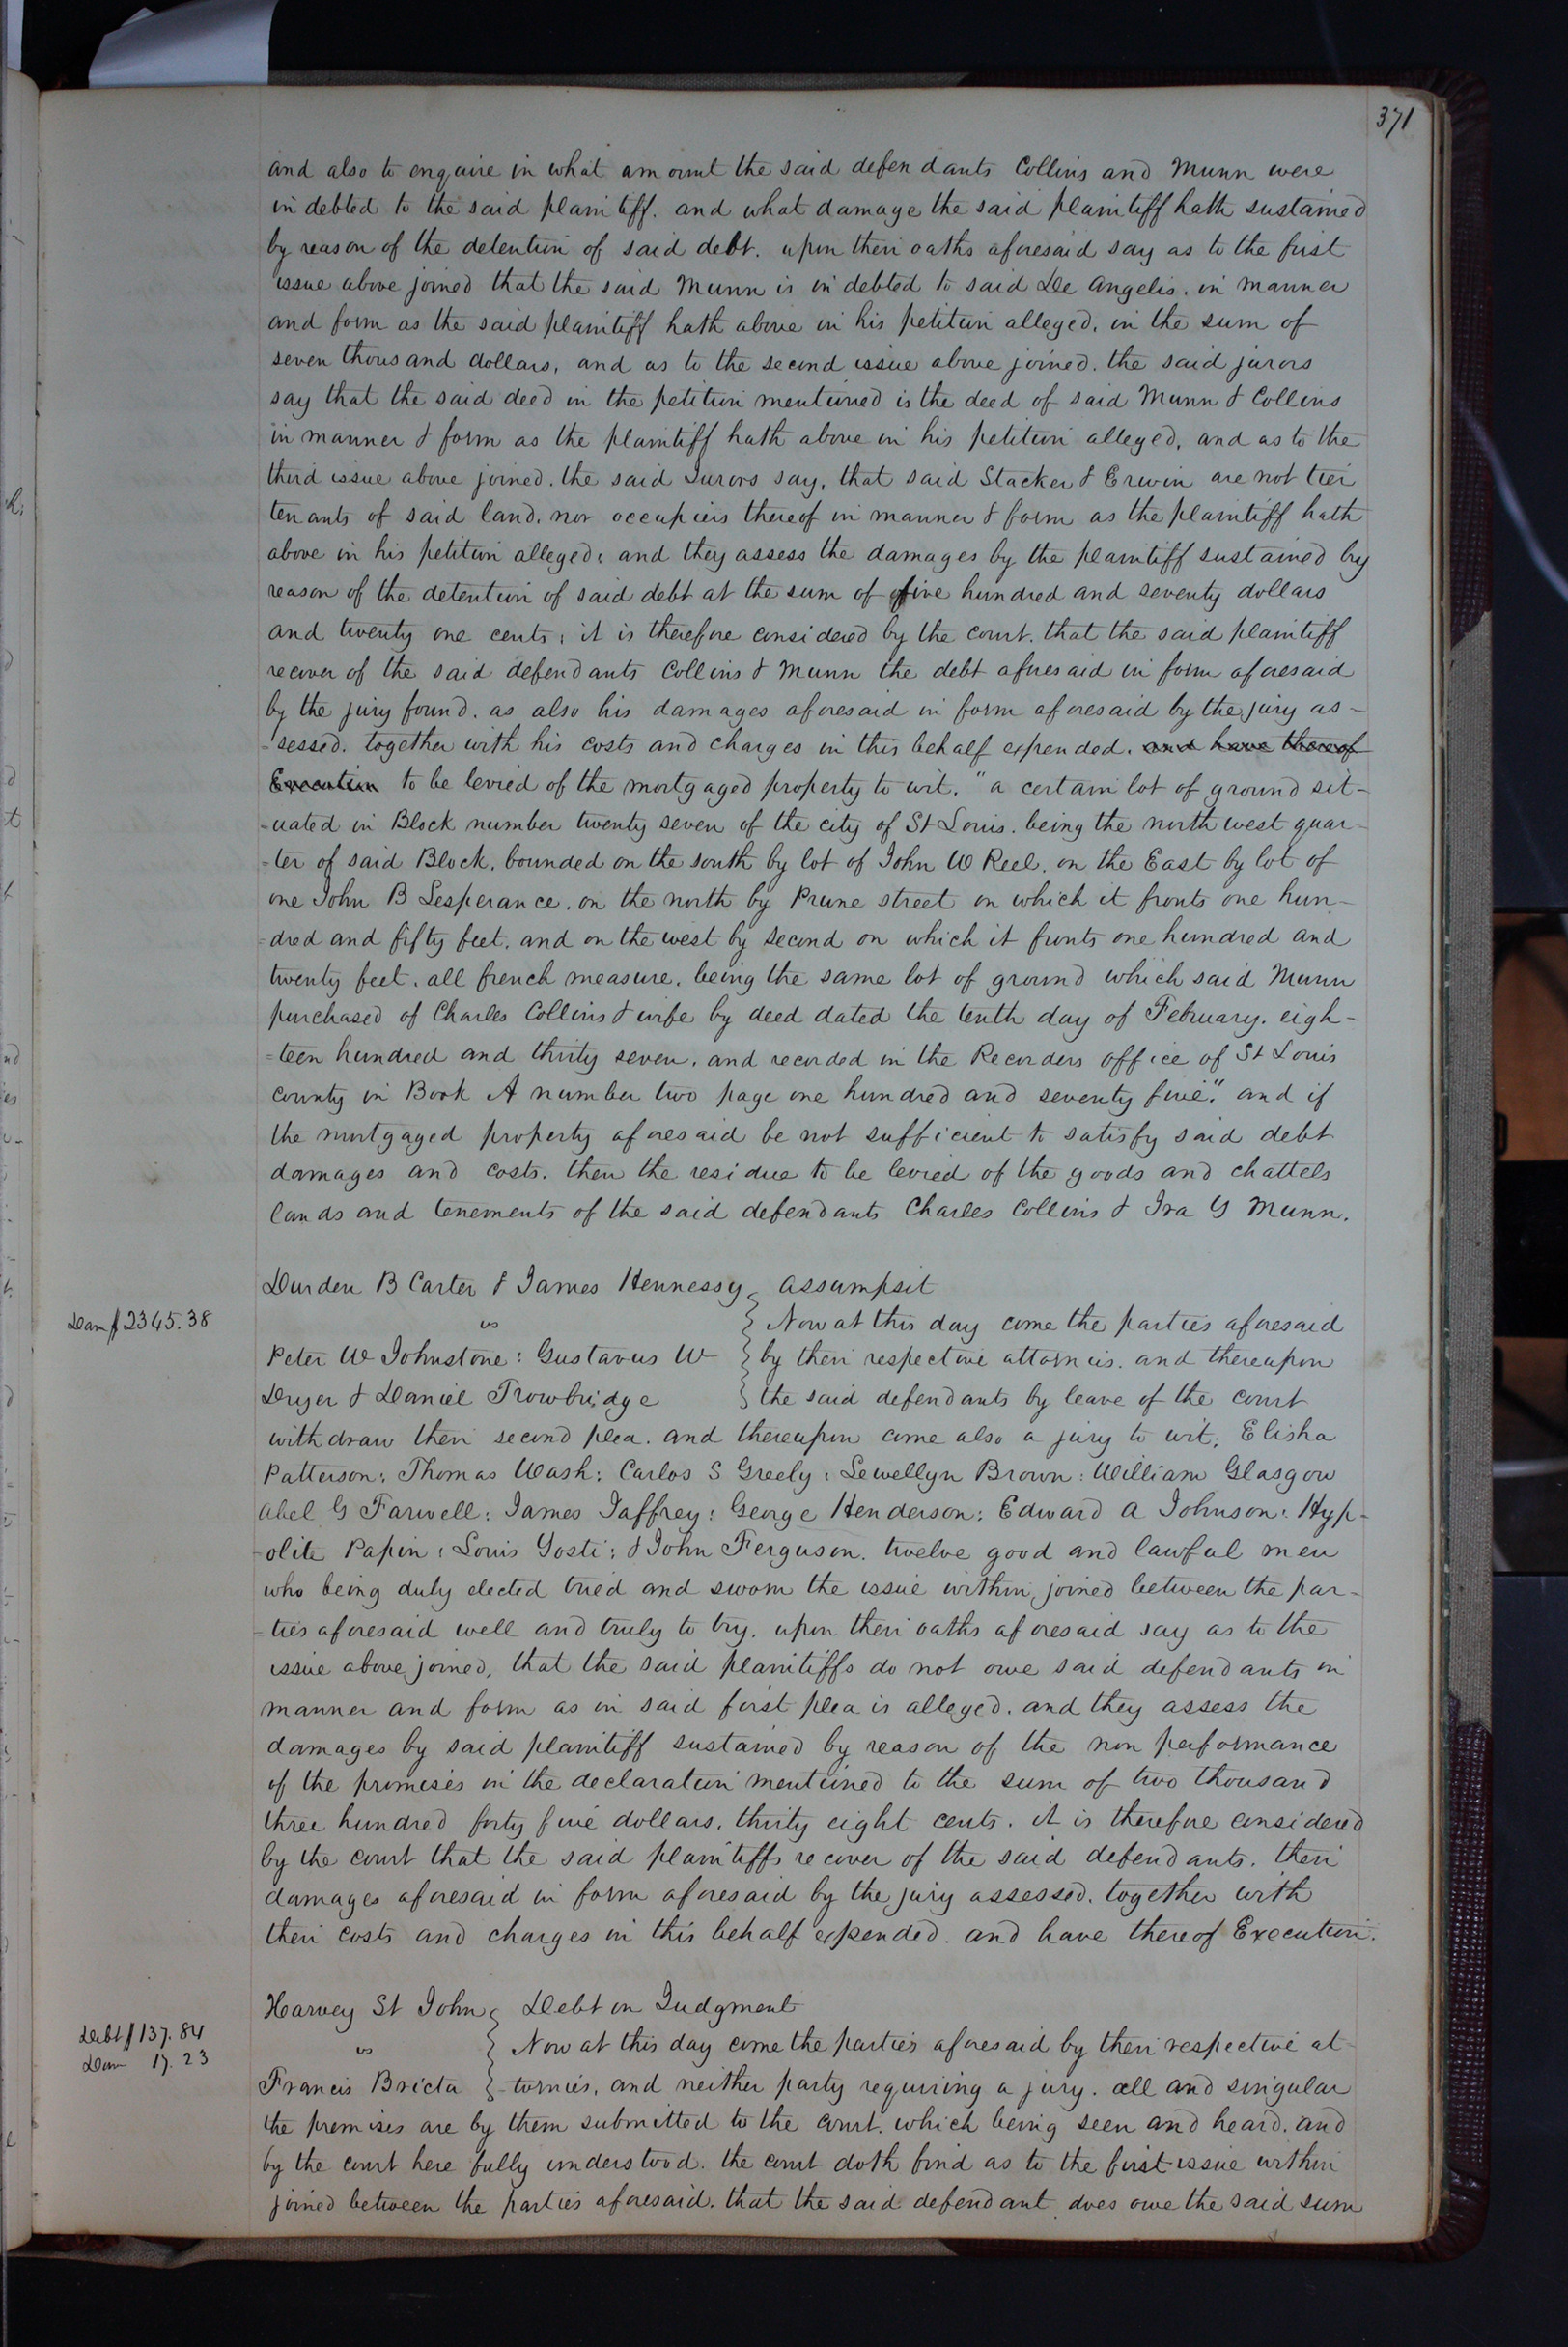 371
and also to enquire in what amount the said defendants Collins and Munn were
indebted to the said plaintiff. and what damage the said plaintiff hath sustained
by reason of the detention of said debt. upon their oaths aforesaid say as to the first
issue above joined that the said Munn is indebted to said De Angelis. in manner
and form as the said plaintiff hath above in his petition alleged, in the sum of
seven thousand dollars, and as to the second issue above joined. the said jurors
say that the said deed in the petition mentioned is the deed of said Munn & Collins
in manner & form as the plaintiff hath above in his petition alleged, and as to the
third issue above joined. the said Jurors say, that said Stacker & Erwin are not tier
tenants of said land. nor occupiers thereof in manner & form as the plaintiff hath
above in his petition alleged: and they assess the damages by the plaintiff sustained by
reason of the detention of said debt at the sum of five hundred and seventy dollars
and twenty one cents; it is therefore considered by the court. that the said plaintiff
recover of the said defendants Collins & Munn the debt aforesaid in form aforesaid
by the jury found. as also his damages aforesaid in form aforesaid by the jury as-
-sessed. together with his costs and charges in this behalf expended. and have thereof
Execution to be levied of the mortgaged property to wit. "a certain lot of ground sit-
-uated in Block number twenty seven of the city of St Louis. being the north west quar-
-ter of said Block. bounded on the south by lot of John W Reel. on the East by lot of
one John B Lesperance. on the north by Prune street on which it fronts one hun-
-dred and fifty feet. and on the west by second on which it fronts one hundred and
twenty feet. all french measure. being the same lot of ground which said Munn
purchased of Charles Collins & wife by deed dated the tenth day of February. eigh-
-teen hundred and thirty seven. and recorded in the Recorders office of St Louis
county in Book A number two page one hundred and seventy five." and if
the mortgaged property aforesaid be not sufficient to satisfy said debt
damages and costs. then the residue to be levied of the goods and chattels
lands and tenements of the said defendants Charles Collins & Ira Y Munn.
Durden B Carter & James Hennessy } assumpsit
Dam $2345.38
vs } Now at this day come the parties aforesaid
Peter W Johnstone: Gustavus W } by their respective attornies. and thereupon
Dryer & Daniel Trowbridge } the said defendants by leave of the court
withdraw their second plea. and thereupon come also a jury to wit; Elisha
Patterson: Thomas Wash: Carlos S Greely: Lewellyn Brown: William Glasgow
Abel G Farwell: James Jaffrey: George Henderson: Edward A Johnson: Hyp-
-olite Papin: Louis Yosti: & John Ferguson. twelve good and lawful men
who being duly elected tried and sworn the issue within joined between the par-
-ties aforesaid well and truly to try. upon their oaths aforesaid say as to the
issue above joined, that the said plaintiffs do not owe said defendants in
manner and form as in said first plea is alleged. and they assess the
damages by said plaintiff sustained by reason of the non performance
of the promises in the declaration mentioned to the sum of two thousand
three hundred forty five dollars. thirty eight cents. it is therefore considered
by the court that the said plaintiffs recover of the said defendants. their
damages aforesaid in form aforesaid by the jury assessed. together with
their costs and charges in this behalf expended. and have thereof Execution.
Harvey St John } Debt on Judgment
Debt $137.84
Dam 17.23
vs } Now at this day come the parties aforesaid by their respective at-
Francis Bricta } -tornies, and neither party requiring a jury. all and singular
the premises are by them submitted to the court. which being seen and heard. and
by the court here fully understood. the court doth find as to the first issue within
joined between the parties aforesaid. that the said defendant does owe the said sum